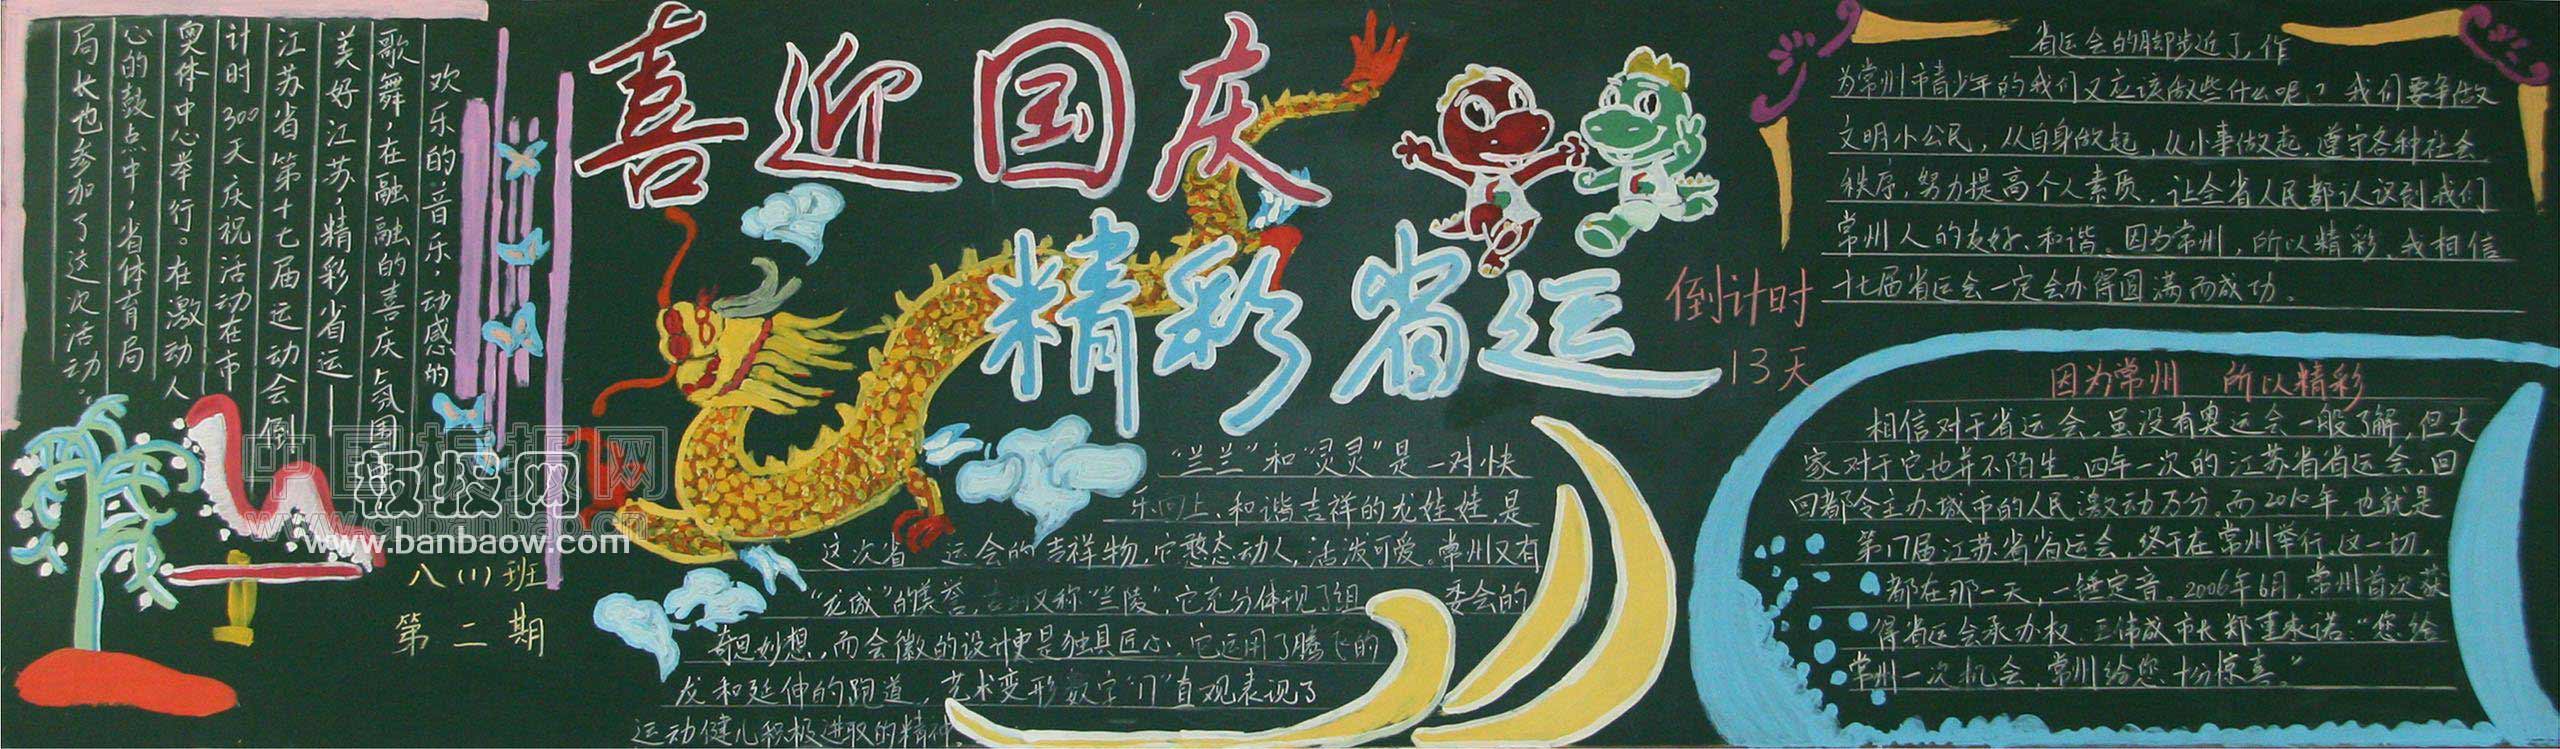 喜迎国庆
精彩省运
倒计时
13天
欢乐的音乐，动感的
歌舞，在融融的喜庆氛围
美好江苏，精彩省运——
江苏省第十七届运动会倒
计时300天庆祝活动在市
奥体中心举行。在激动人
心的鼓点中，省体育局
局长也参加了这次活动。
八(1)班
第二期
"兰兰"和"灵灵"是一对快
乐向上、和谐吉祥的龙娃娃，是
这次省运会的吉祥物，它憨态动人，活泼可爱。常州又有
"龙城"的美誉，古州又称"兰陵"，它充分体现了组委会的
奇思妙想，而会徽的设计更是独具匠心，它运用了腾飞的
龙和延伸的跑道，艺术变形数字"17"直观表现了
运动健儿积极进取的精神。
省运会的脚步近了，作
为常州市青少年的我们又应该做些什么呢？我们要争做
文明小公民，从自身做起，从小事做起，遵守各种社会
秩序，努力提高个人素质，让全省人民都认识到我们
常州人的友好、和谐。因为常州，所以精彩，我相信
十七届省运会一定会办得圆满而成功。
因为常州 所以精彩
相信对于省运会，虽没有奥运会一般了解，但大
家对于它也并不陌生。四年一次的江苏省省运会，回
回都令主办城市的人民激动万分。而2010年，也就是
第17届江苏省省运会，终于在常州举行。这一切，
都在那一天，一锤定音。2006年6月，常州首次获
得省运会承办权，王伟成市长郑重承诺："您给
常州一次机会，常州给您十分惊喜。"
中国板报网
板报网
www.cnbanbao.cn
www.banbaow.com